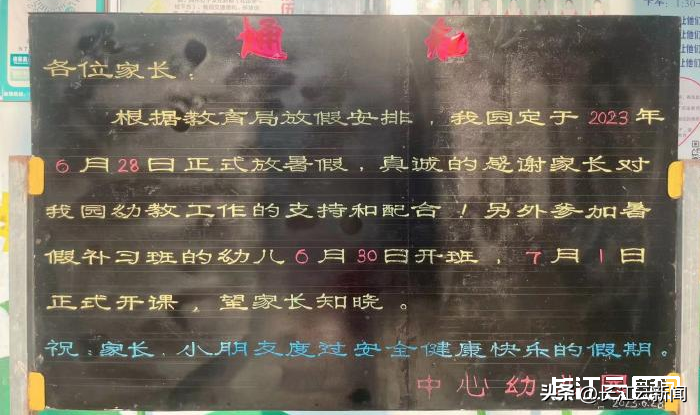 通知
各位家长：
根据教育局放假安排，我园定于2023年
6月28日正式放暑假，真诚的感谢家长对
我园幼教工作的支持和配合！另外参加暑
假补习班的幼儿6月30日开班，7月1日
正式开课，望家长知晓。
祝：家长、小朋友度过安全健康快乐的假期。
中心幼
2023.6.28